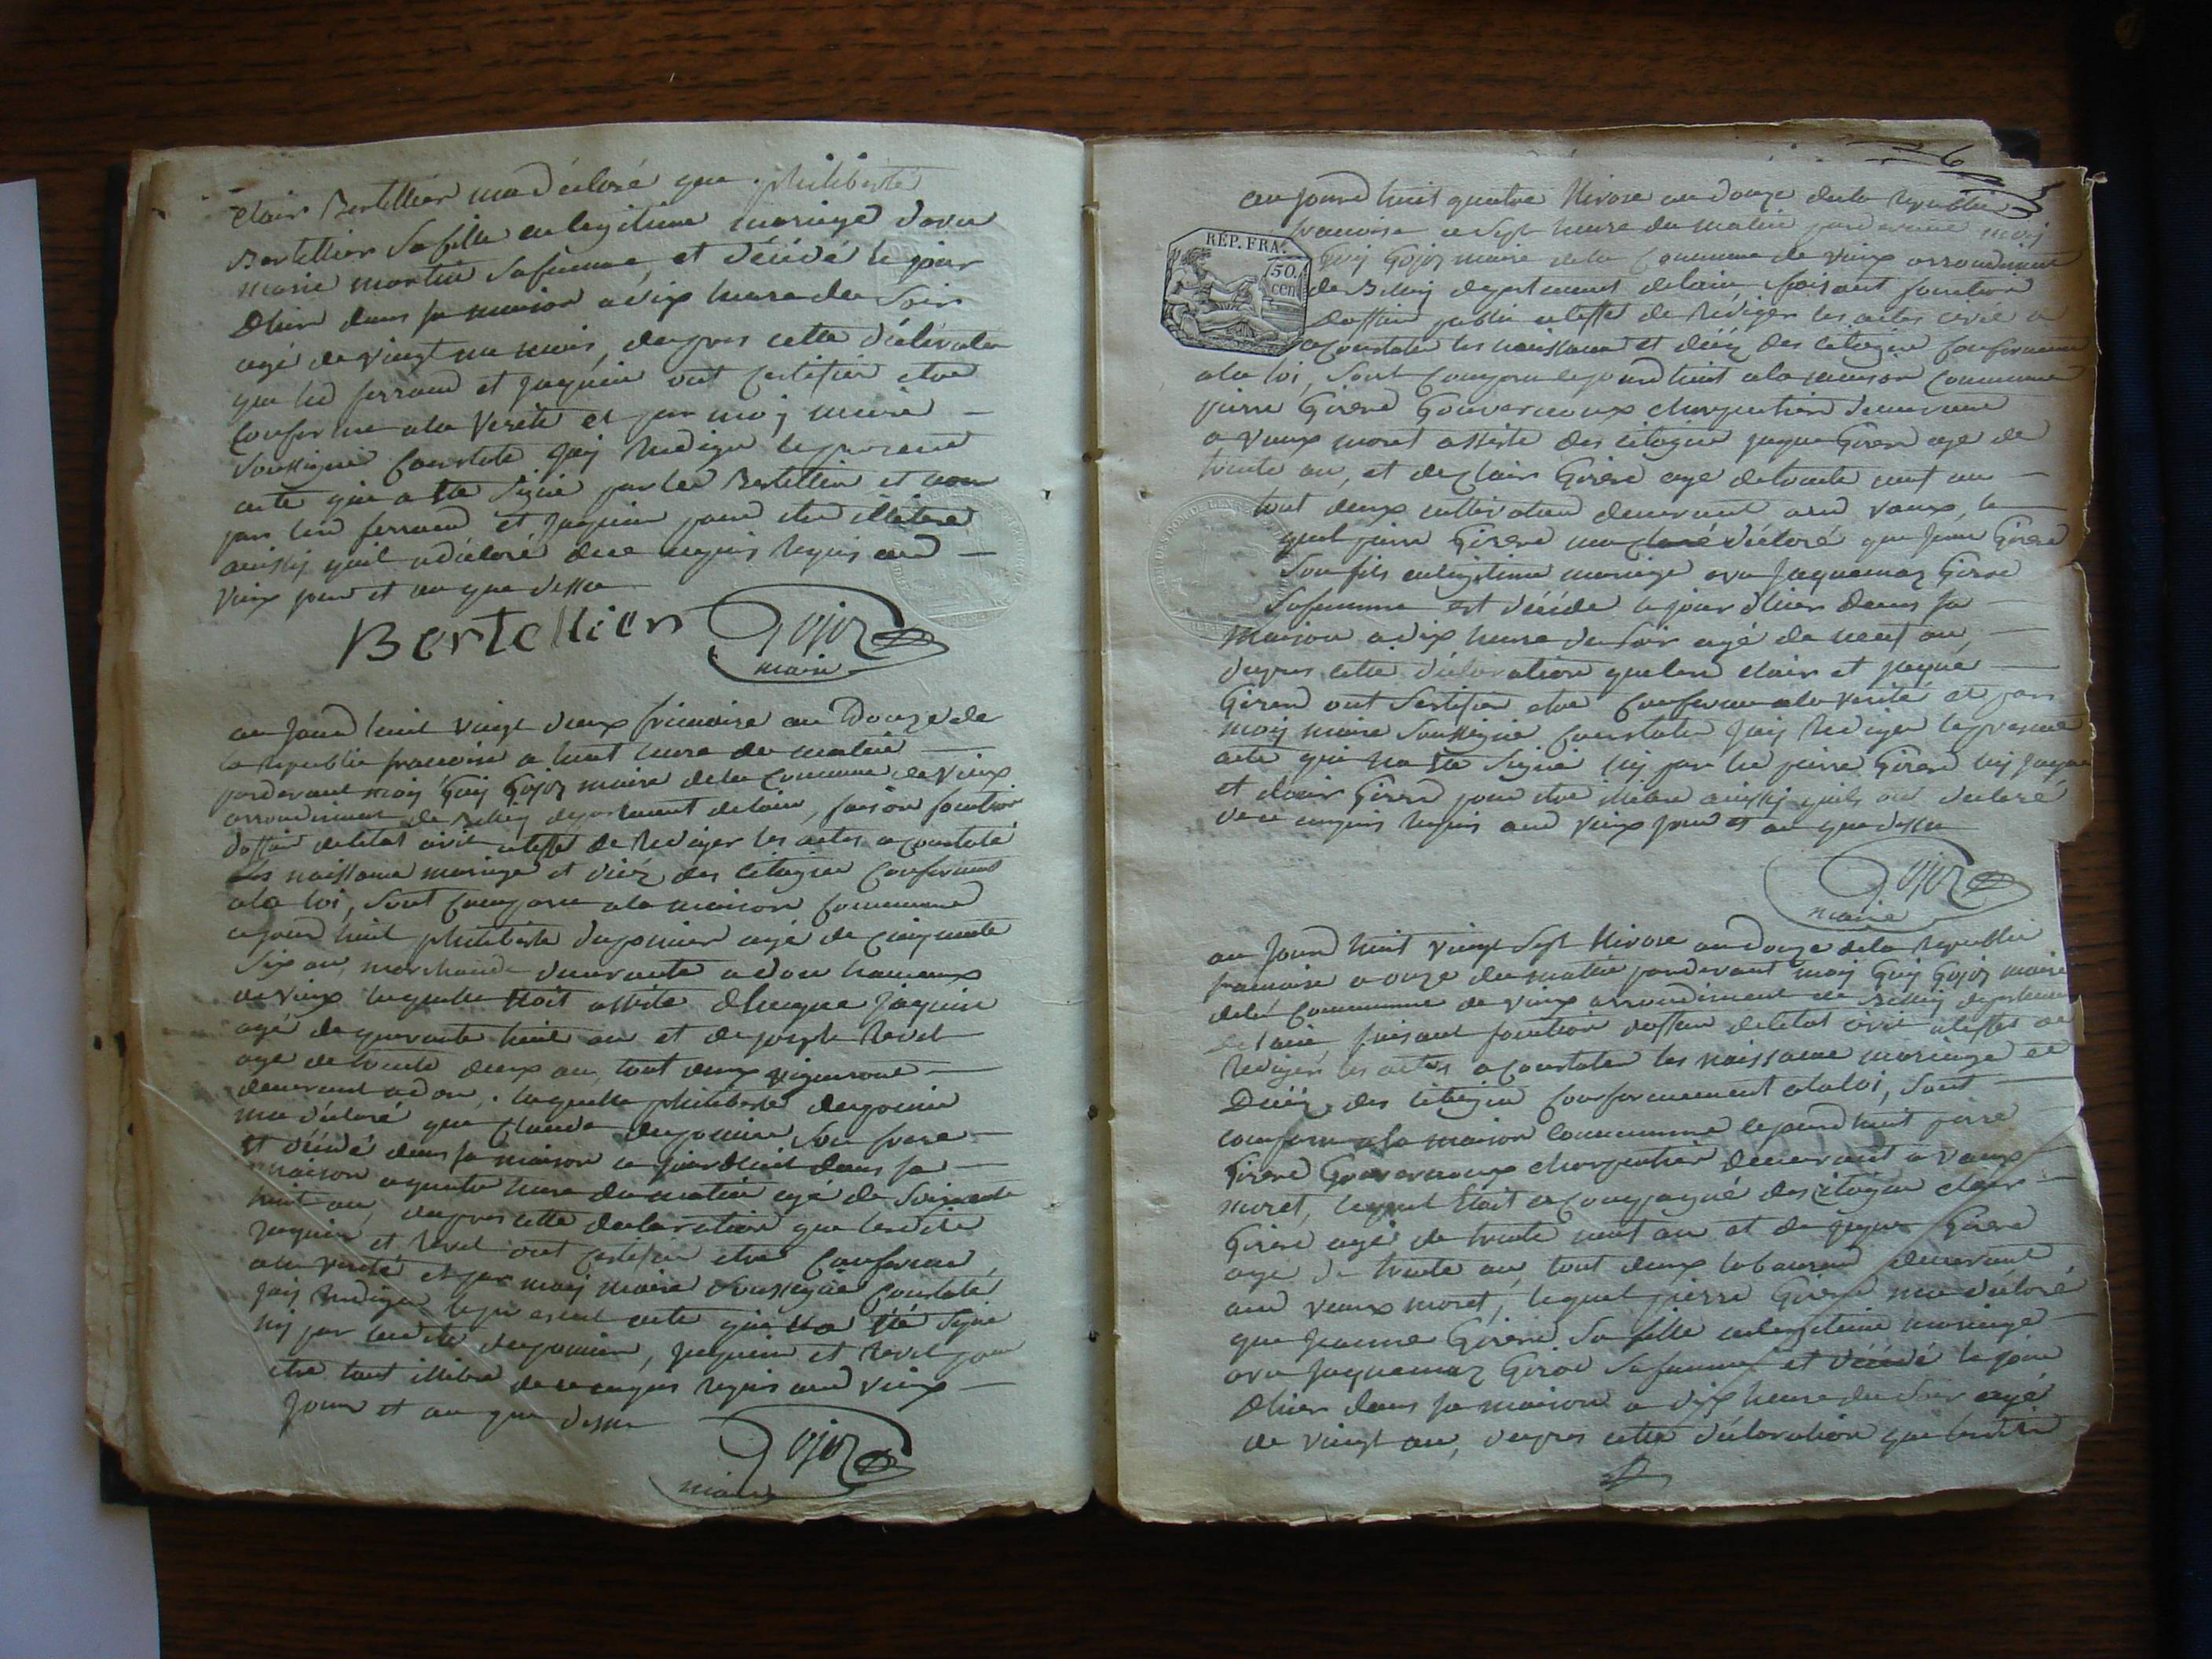 Clair Bertellier ma déclaré que philiberte
Bertellier sa fille en legitime mariage davec
marie martin sa femme, et décédé le jour
dhier dans sa maison a dix heure du soir
agé de vingt un mois, dapres cette déclaration
que led ferrand et jaquin ont certifier etre
conforme a la verité et par moy maire
soussigne constate jay redigé le present
acte qui a ete signé par led Bertellier et non
par led ferrand et jaquin pour etre illitere
ainssy quil ont déclaré de ce enquis requis aud
vieux jour et an que dessu
Bertellier Gojoz
maire
au jourd huit vingt deux frimaire an douze de
la republie francoise a huit heure du matin
pardevant moy Guy Gojoz maire de la commune de vieux
arrondiment de Belley departement de lain, faison fonction
doffier de letat civil a leffet de rediger les actes a constaté
les naissance mariage et décéz des citogien conforment
a la loi, sont comparu a la maison commune
cejourd huit philiberte duponier agé de cinquante
six an, marchande demeurante a don hameaux
de vieux laquelle etoit assité dhugue jaquin
agé de quarante huit an et de joseph revel
age de trente deux an, tout deux vigneront
demeurant a don, laquelle philiberte duponier
ma déclaré que claude duponier son frere
et décédé dans sa maison ce jourdhuit dans sa
maison a quatre heure du matin agé de soixante
huit an, dapres cette declaration que lesdite
jaquin et revel ont certifier etre conforme,
a la verité et par moy maire soussigné constaté
jay rediger le present acte qui na été signé
ny par ladite duponier, jaquin et revel pour
etre tout illitere de ce enquis requis aud vieux
jour et an que dessu
Gojoz
maire
au jourd huit quatre Nivose an douze de la republie
francoise a sept heure du matin pardevant moy
REP. FRA.
50
cen
Guy Gojoz maire de la commune de vieux arrondiment
de Belley departement de lain faisant fonction
doffier public a leffet de rediger les actes civil a
constater les naissance et décéz des citogien conformement
a la loi, sont comparu cejourd huit a la maison commune
pierre Girerd Gouvernoux charpentier demeurant
a vaux moret assisté des citogien jaque Girerd agé de
trente an, et de clair Girerd agé de trente neuf an
tout deux cultivateur demeurant aud vaux, le
quel pierre Girerd ma déclaré que Girerd
son fils en legitime mariage avec jaquemaz Girod
sa femme est décédé le jour dhier dans sa
maison a dix heure du soir agé de neuf an,
dapres cette déclaration que clair et jaque
Girerd ont sertifier etre conforme a la verite et par
moy maire soussigné constater jay rediger le present
acte qui na été signé ny par led pierre Girerd ny jaque
et clair Girerd pour etre illitere ainssy quils ont declaré
de ce enquis requis aud vieux jour et an que dessu
Gojoz
maire
au jourd huit vingt sept Nivose an douze de la republie
francoise a onze du matin pardevant moy Guy Gojoz maire
de la commune de vieux arrondiment de Belley departement
de lain faisant fonction doffier de letat civil a leffet de
rediger les actes a constater les naissance mariage et
Décéz des citogien conformement a la loi, sont
comparu a la maison commune cejourd huit pierre
Girerd Gouvernoux charpentier demeurant a vaux
moret, lequel etoit accompagné des citogien clair
Girerd agé de trente neuf an et de jaque Girerd
age de trente an, tout deux laboureur demeurant
aud vaux moret, lequel pierre Girerd ma déclaré
que jeanne Girerd sa fille en legitime mariage
avec jaquemaz Girod sa femme et décédé le jour
dhier dans sa maison a dix heure du soir agé
de vingt an, dapres cette déclaration que lesdite